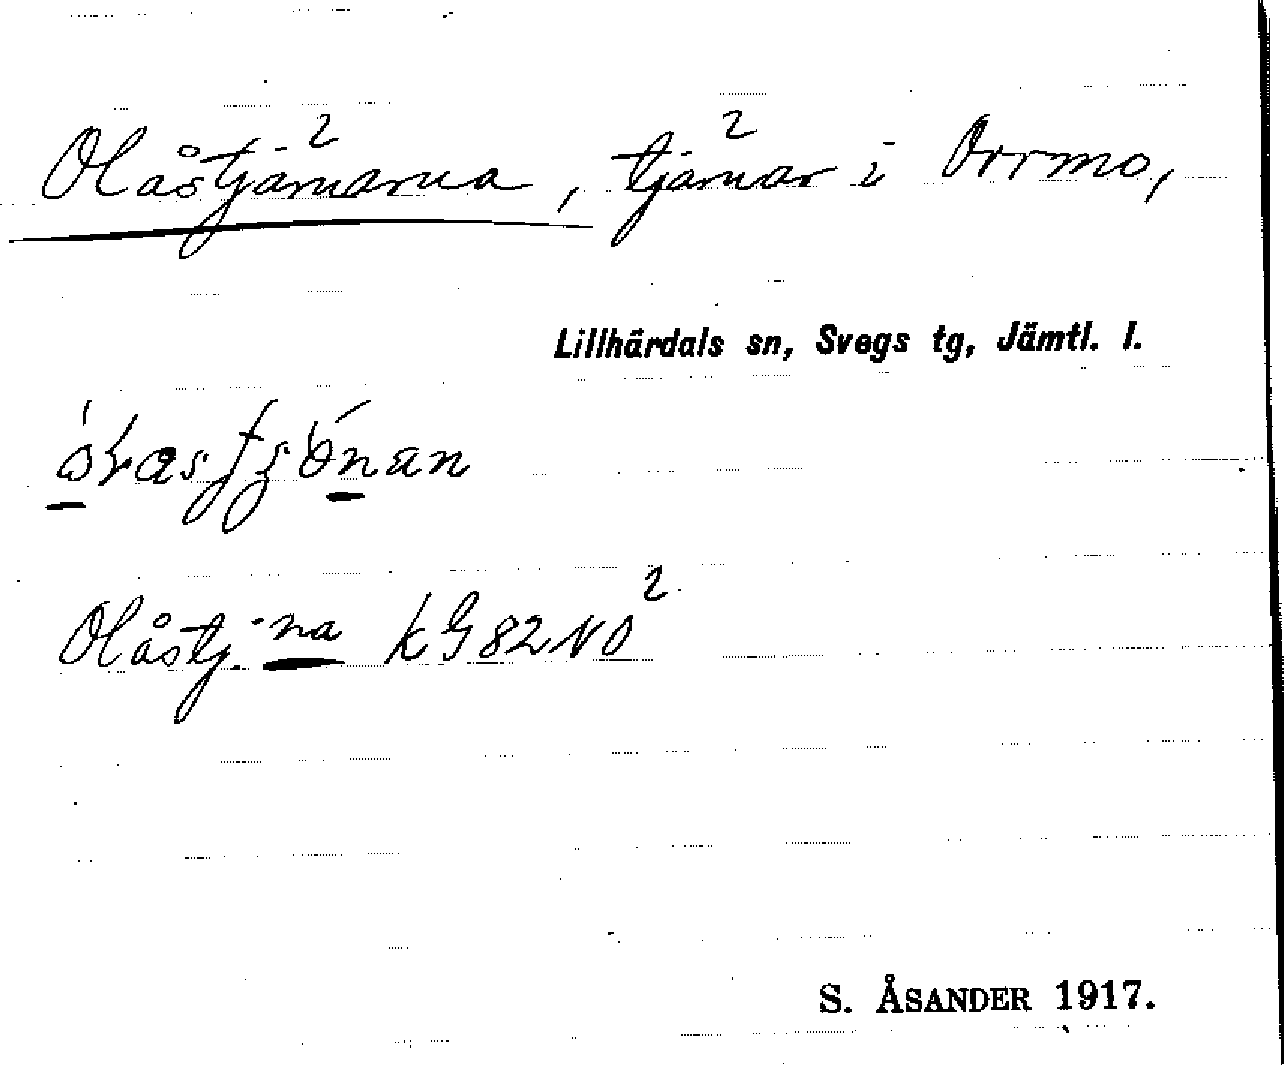 Olåstjärnarna, 2 tjärnar i Orrmo,
Lillhärdals sn, Svegs tg, Jämtl. l.
Olåstj. -na kG82NO²
S. ÅSANDER 1917.